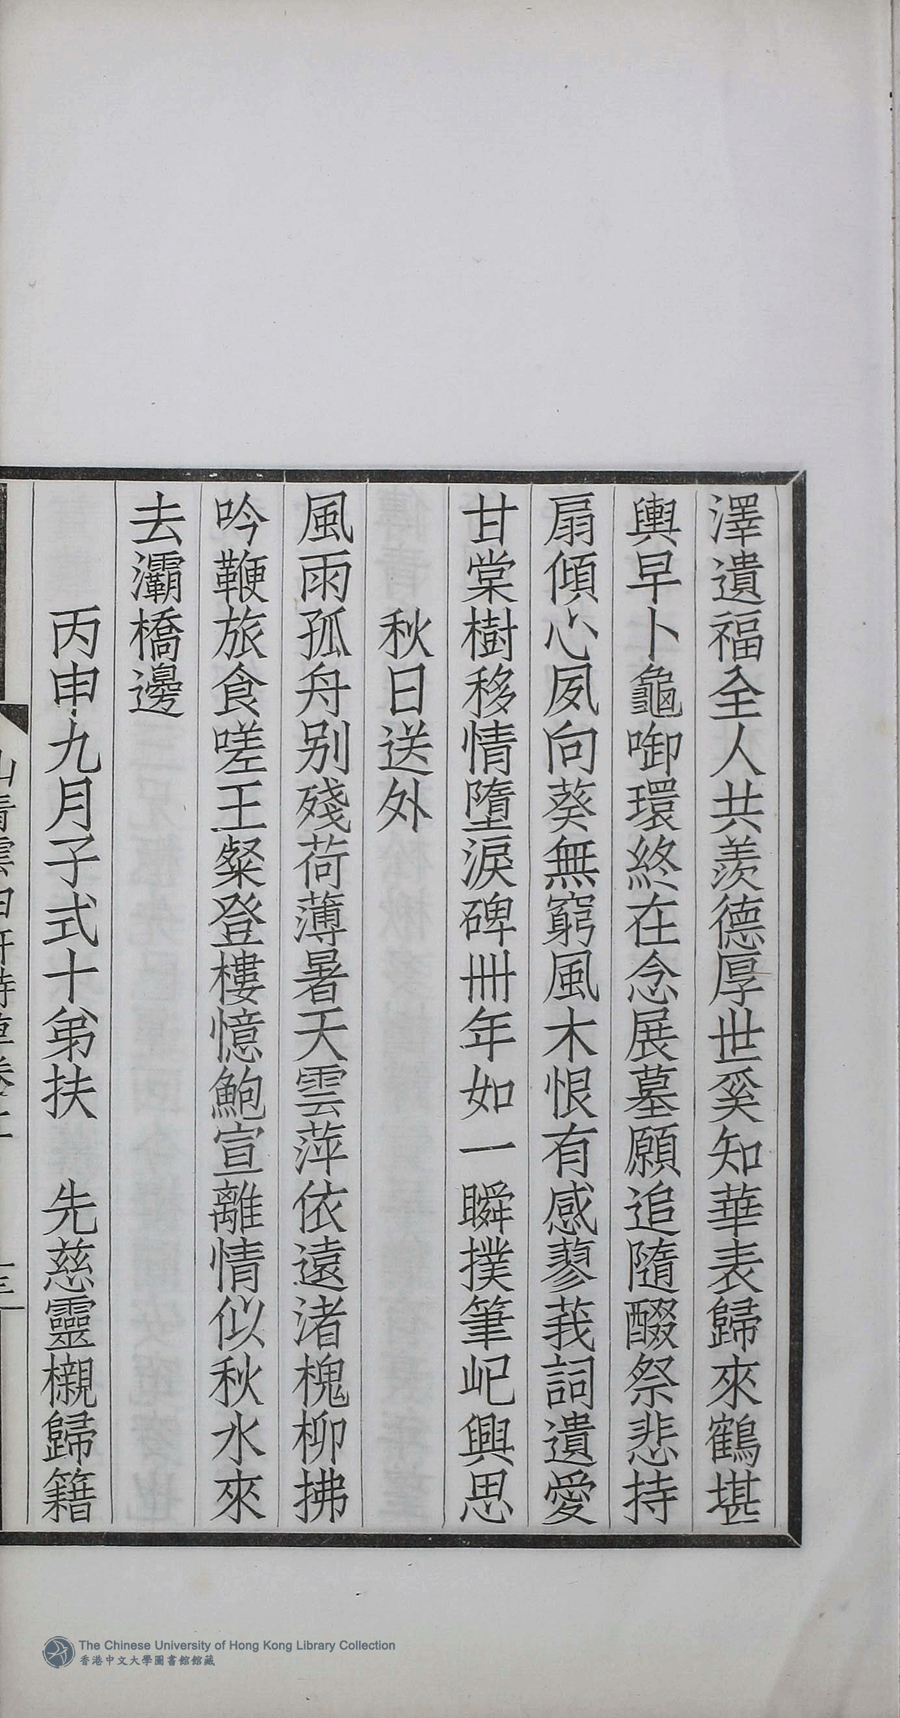 澤遺福全人共羨德厚世奚知華表歸來鶴堪
輿早卜龜啣環終在念展墓願追隨醊祭悲持
扇傾心夙向葵無窮風木恨有感蓼莪詞遺愛
甘棠樹移情墮淚碑卌年如一瞬撲筆屺興思
秋日送外
風雨孤舟别殘荷薄暑天雲萍依遠渚槐柳拂
吟鞭旅食嗟王粲登樓憶鮑宣離情似秋水來
去灞橋邊
丙申九月子式十弟扶 先慈靈櫬歸籍
The Chinese University of Hong Kong Library Collection
香港中文大學圖書館館藏